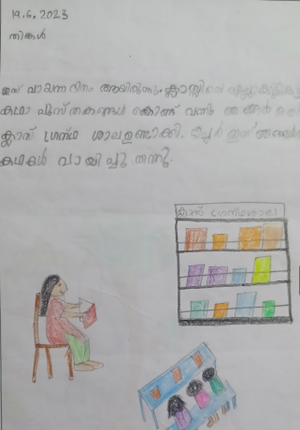 19.6.2023
തിങ്കൾ
ഇന്ന് വായന ദിനം ആയിരുന്നു. ക്ലാസ്സിലെ
കഥാ പുസ്തകങ്ങൾ കൊണ്ട് വന്നു
ക്ലാസ് ഗ്രന്ഥ ശാല ഉണ്ടാക്കി. ടീച്ചർ ഇന്ന്
കഥകൾ വായിച്ചു തന്നു.
ക്ലാസ് ഗ്രന്ഥശാല